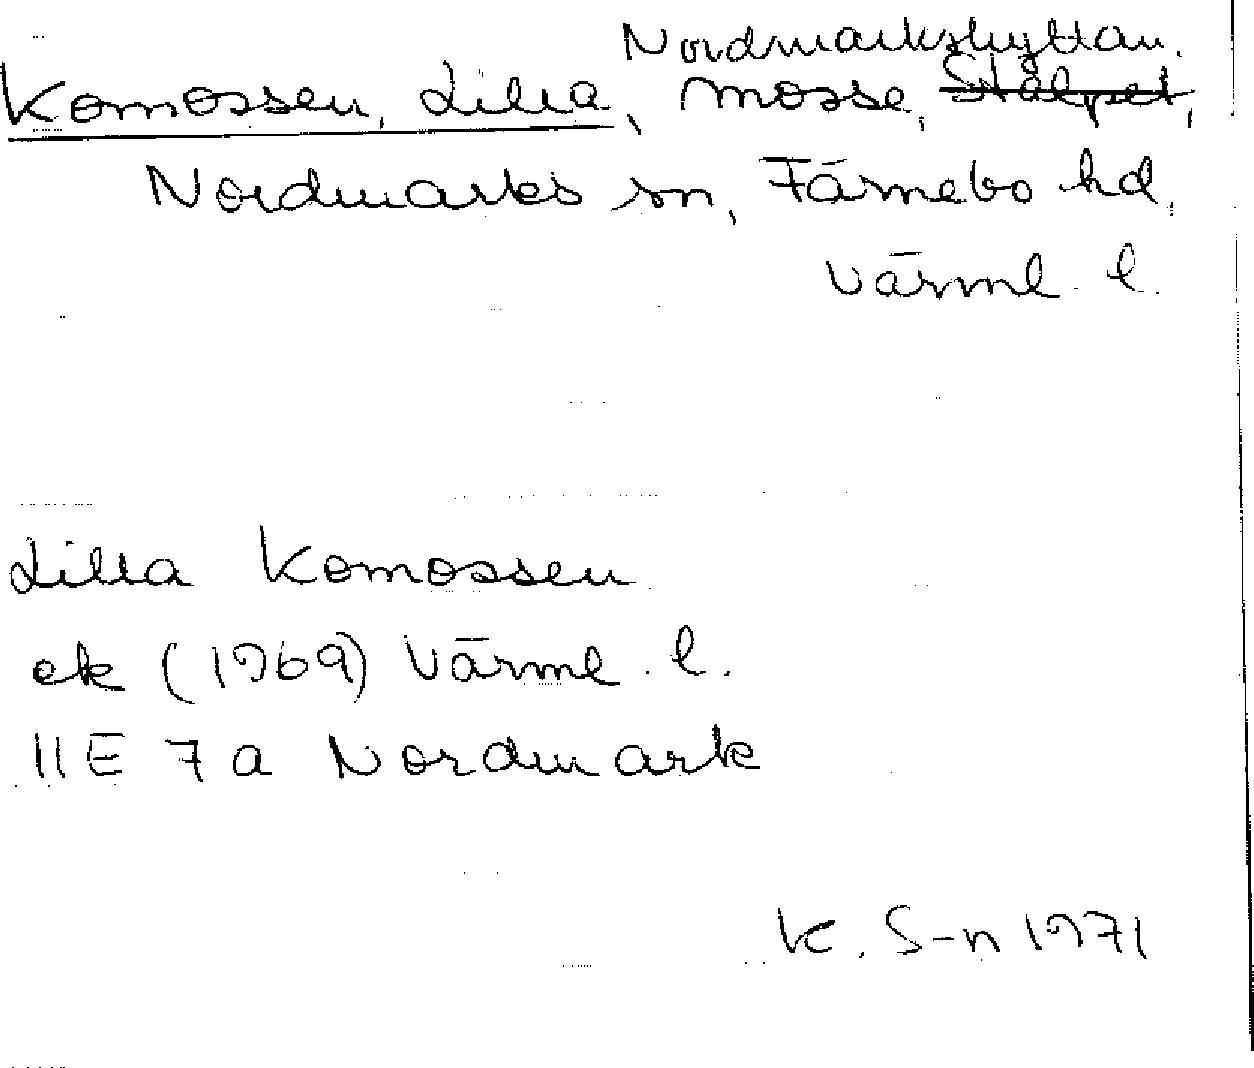 Nordmarkshyttan.
Komossen, Lilla, mosse, Stålpet,
Nordmarks sn, Färnebo hd,
Värml. l.
Lilla Komossen
ek (1969) Värml. l.
11E 7a Nordmark
K. S-n 1971